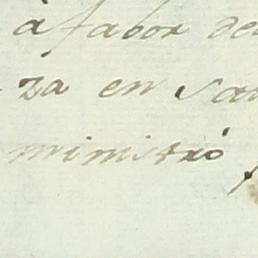 à fabor de
za en Sa
ministró